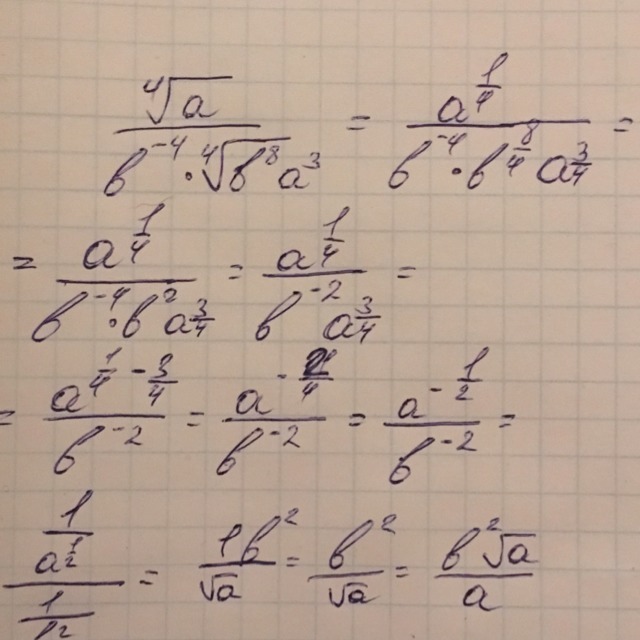 ⁴√a / (b⁻⁴ · ⁴√(b⁸ a³)) = a^(1/4) / (b⁻⁴ · b^(8/4) a^(3/4)) =
= a^(1/4) / (b⁻⁴ · b² a^(3/4)) = a^(1/4) / (b⁻² a^(3/4)) =
= a^(1/4 - 3/4) / b⁻² = a^(-2/4) / b⁻² = a^(-1/2) / b⁻² =
(1 / a^(1/2)) / (1 / b²) = 1b² / √a = b² / √a = b²√a / a